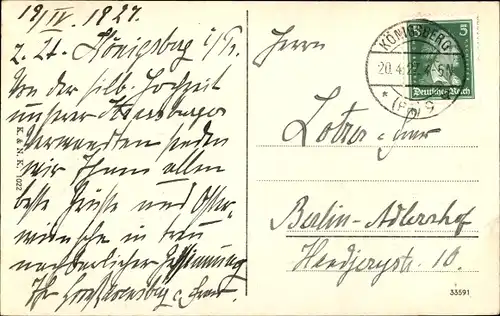 19/IV. 1927.
z. Zt. Königsberg i/Pr.
Von der silb. Hochzeit
unserer
Verwandten senden
wir Ihnen allen
beste Grüße und Oster-
wünsche in treu
nachbarlicher Gesinnung
Ihr
K. & N. K. 1022
Herrn
Berlin-Adlershof
10.
KÖNIGSBERG
20.4.27
(Pr) 9
5
Deutsches Reich
33591